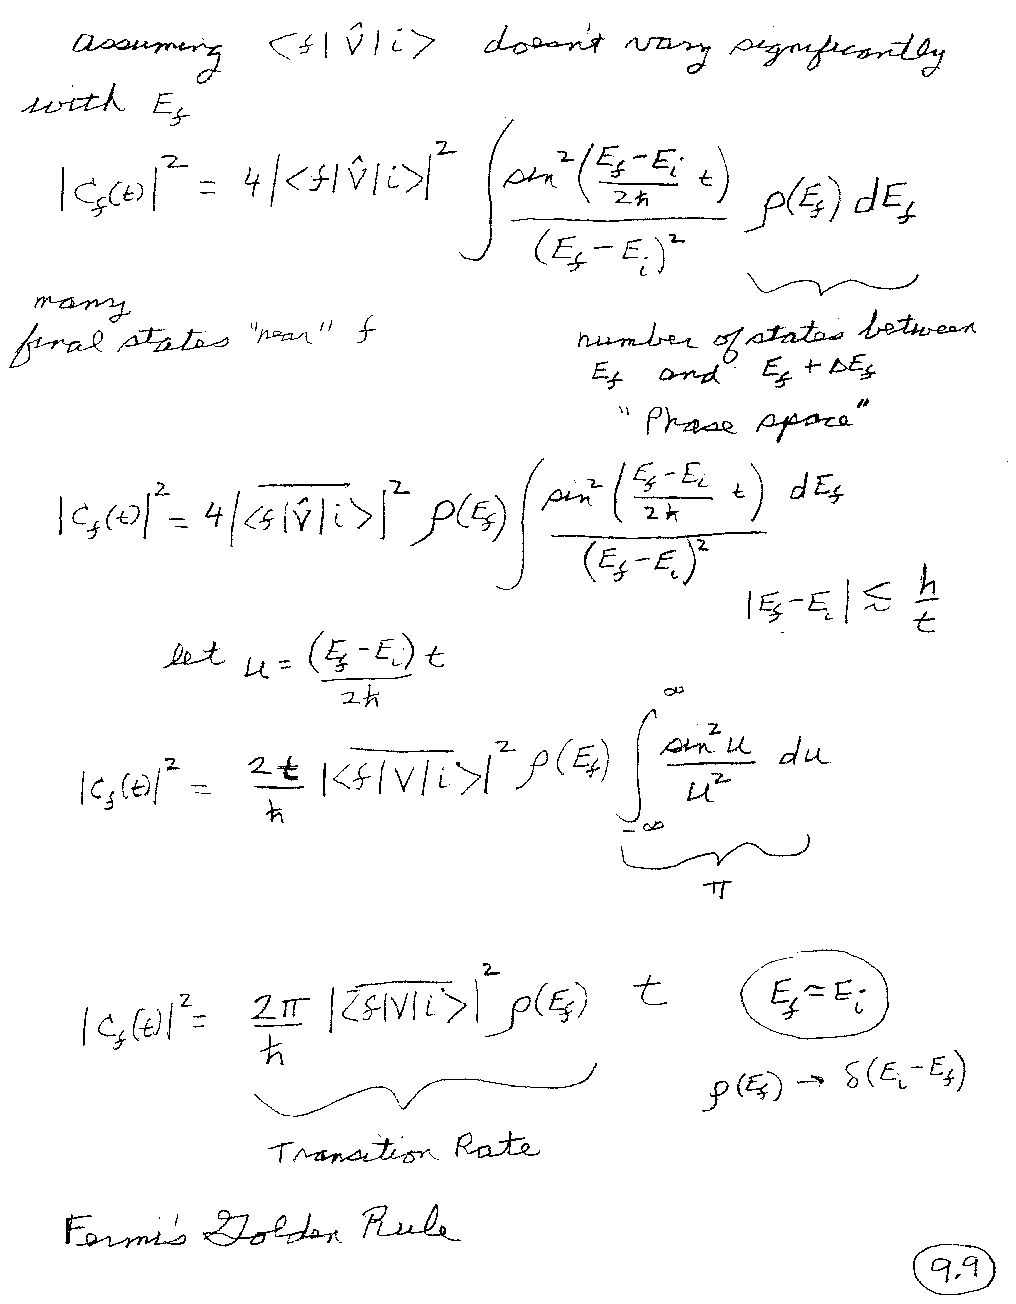 assuming <f|V̂|i> doesn't vary significantly
with E_f
|C_f(t)|² = 4|<f|V̂|i>|² ∫ sin²((E_f - E_i)/2ħ t) / (E_f - E_i)² ρ(E_f) dE_f
many
final states "near" f
number of states between
E_f and E_f + ΔE_f
"Phase space"
|C_f(t)|² = 4|<f|V̂|i>|² ρ(E_f) ∫ sin²((E_f - E_i)/2ħ t) / (E_f - E_i)² dE_f
|E_f - E_i| ≲ h/t
let u = (E_f - E_i)t / 2ħ
|C_f(t)|² = 2t/ħ |<f|V|i>|² ρ(E_f) ∫_{-∞}^{∞} sin²u/u² du
π
|C_f(t)|² = 2π/ħ |<f|V|i>|² ρ(E_f) t E_f ≃ E_i
ρ(E_f) → δ(E_i - E_f)
Transition Rate
Fermi's Golden Rule
9.9